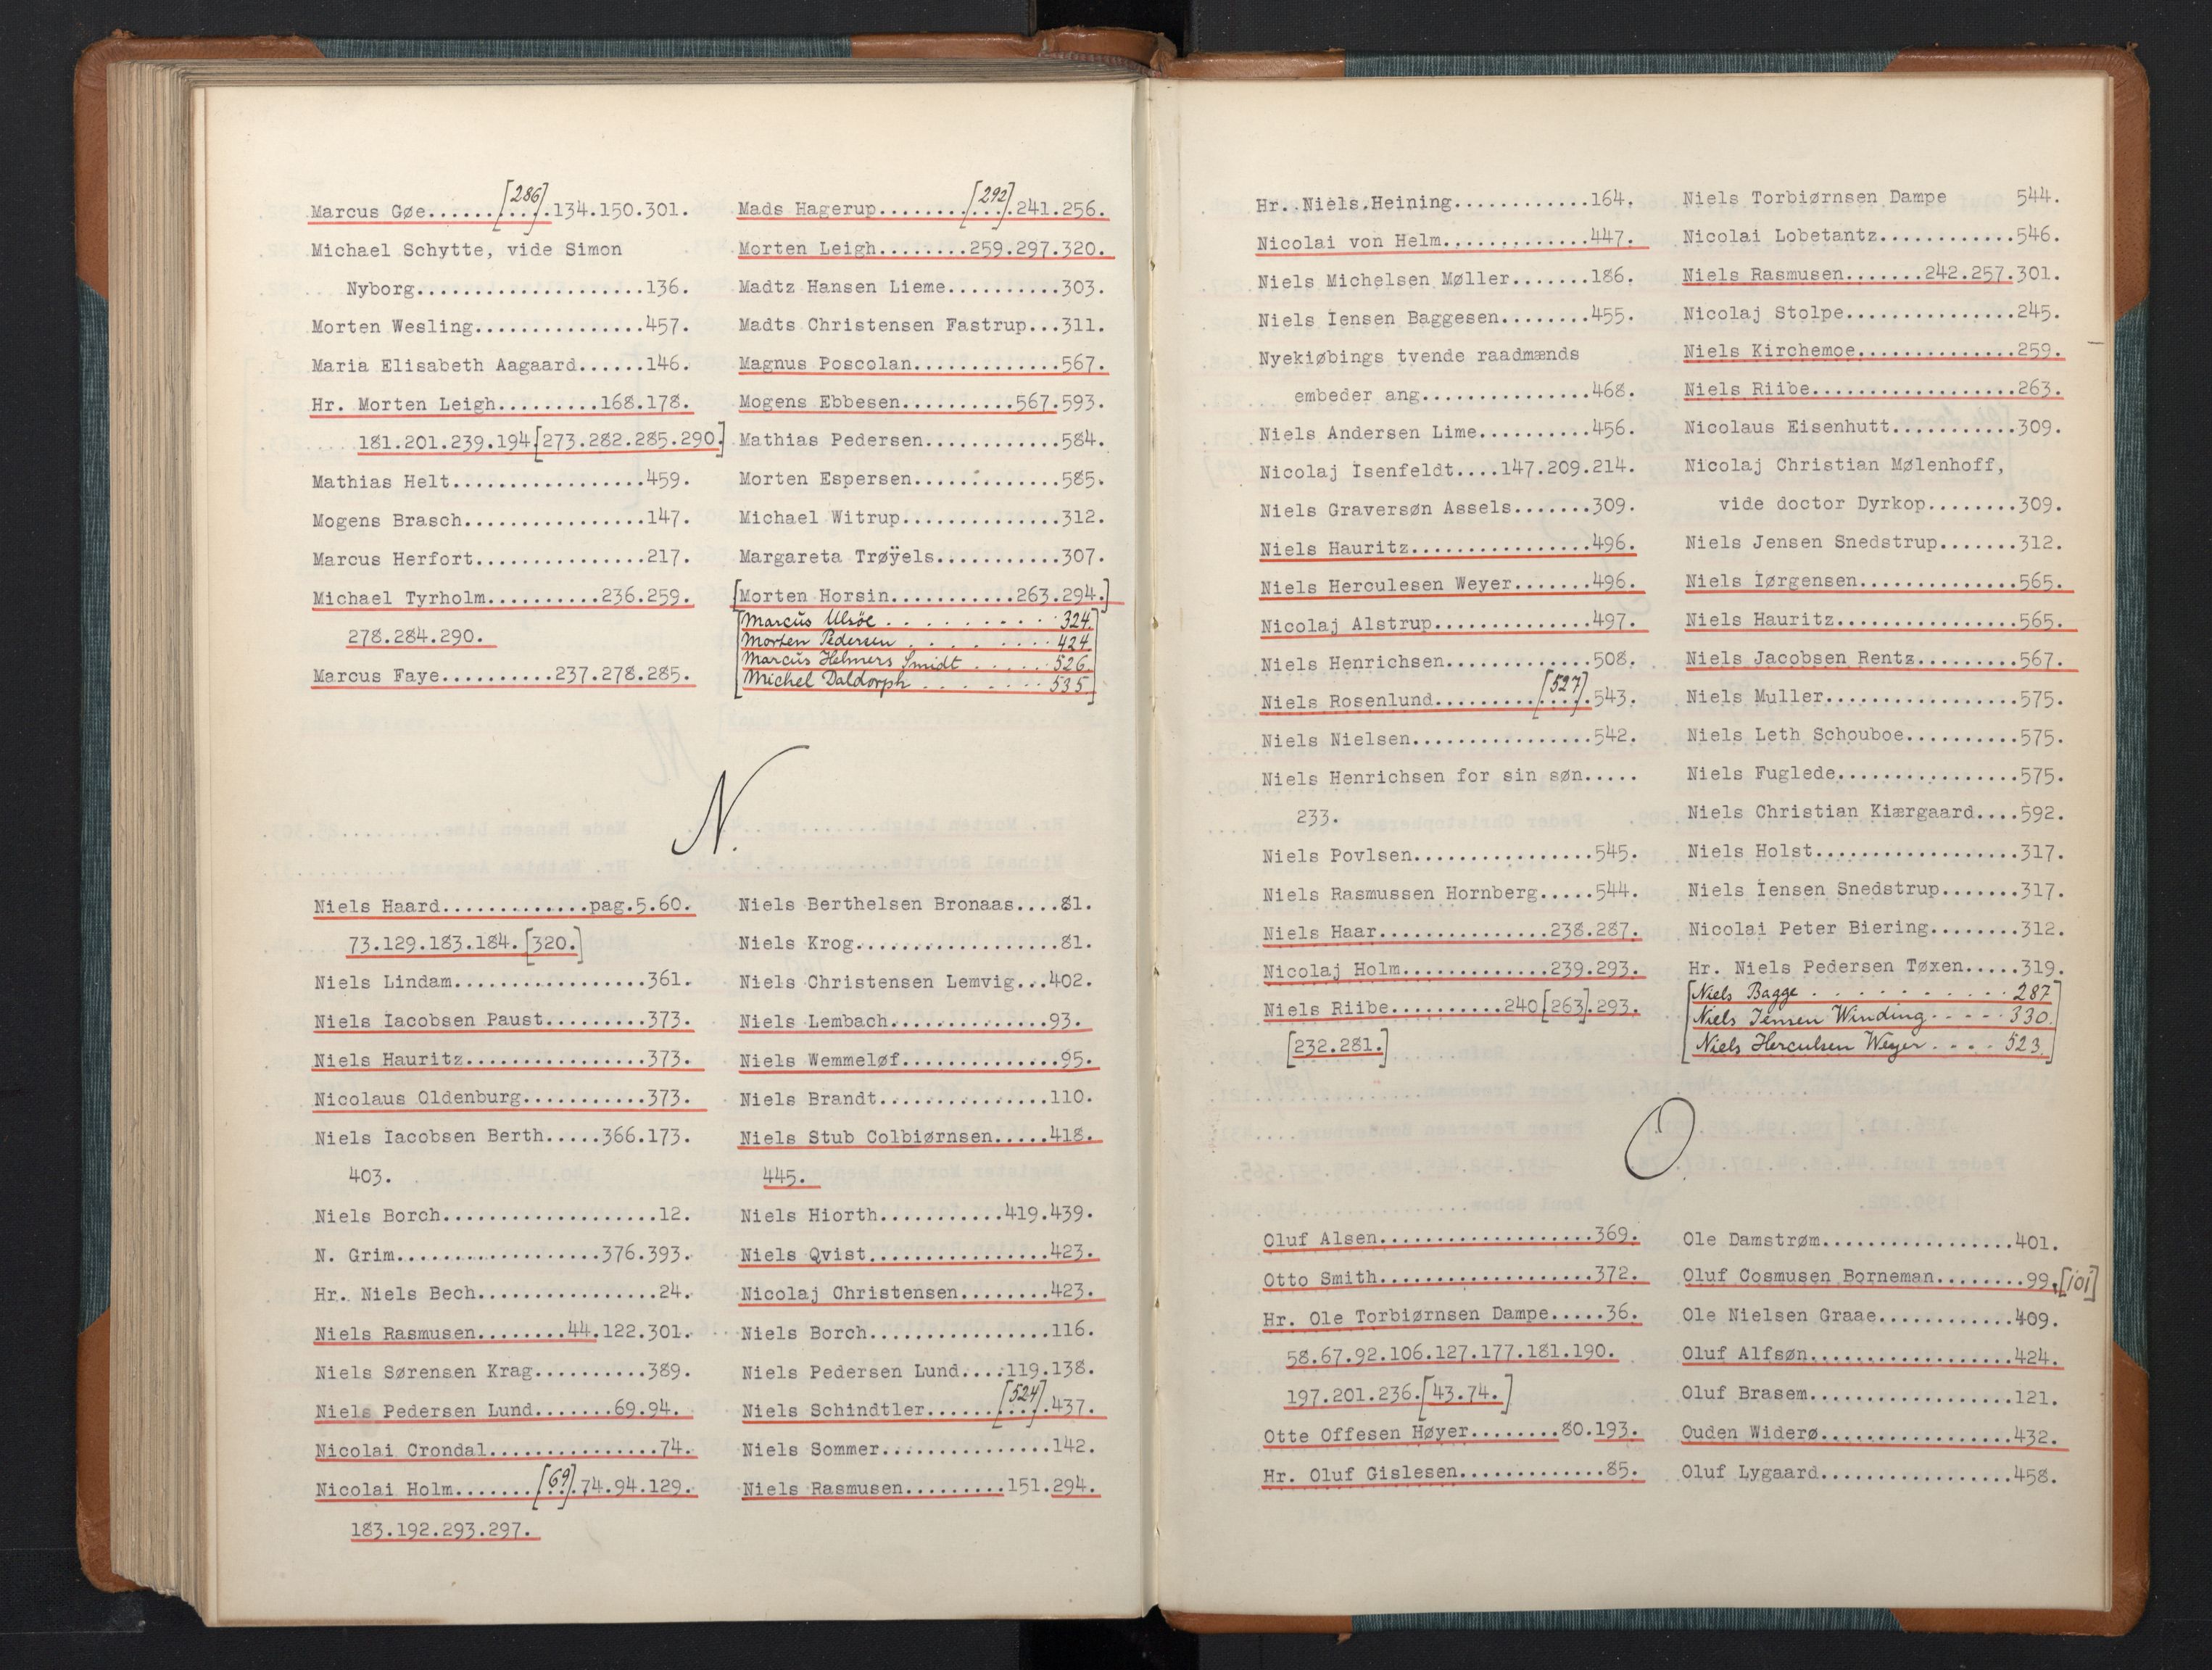 Marcus Gøe.......[286]....134.150.301.
Michael Schytte, vide Simon
Nyborg....................136.
Morten Wesling...............457.
Maria Elisabeth Aagaard......146.
Hr. Morten Leigh.........168.178.
181.201.239.194.[273.282.285.290.]
Mathias Helt.................459.
Mogens Brasch................147.
Marcus Herfort...............217.
Michael Tyrholm..........236.259.
278.284.290.
Marcus Faye..........237.278.285.
Mads Hagerup........[292]....241.256.
Morten Leigh........259.297.320.
Madtz Hansen Lieme..........303.
Madts Christensen Fastrup...311.
Magnus Poscolan.............567.
Mogens Ebbesen..........567.593.
Mathias Pedersen............584.
Morten Espersen.............585.
Michael Witrup..............312.
Margareta Trøÿels...........307.
[Morten Horsin...........263.294.]
[Marcus Ulsöe . . . . . . . . . . 324.
Morten Pedersen . . . . . . . . 424.
Marcus Helmers Smidt . . . . . 526.
Michel Daldorph . . . . . . . 535]
N.
Niels Haard.............pag.5.60.
73.129.183.184.[320.]
Niels Lindam.................361.
Niels Iacobsen Paust.........373.
Niels Hauritz................373.
Nicolaus Oldenburg...........373.
Niels Iacobsen Berth.....366.173.
403.
Niels Borch...................12.
N. Grim..................376.393.
Hr. Niels Bech................24.
Niels Rasmusen........44.122.301.
Niels Sørensen Krag..........389.
Niels Pedersen Lund.......69.94.
Nicolai Crondal...............74.
Nicolai Holm.......[69]...74.94.129.
183.192.293.297.
Niels Berthelsen Bronaas....81.
Niels Krog..................81.
Niels Christensen Lemvig...402.
Niels Lembach..............93.
Niels Wemmeløf..............95.
Niels Brandt...............110.
Niels Stub Colbiørnsen.....418.
445.
Niels Hiorth...........419.439.
Niels Qvist................423.
Nicolaj Christensen........423.
Niels Borch................116.
Niels Pedersen Lund....119.138.
Niels Schindtler......[524]....437.
Niels Sommer...............142.
Niels Rasmusen.........151.294.
Hr. Niels Heining............164.
Nicolai von Helm.............447.
Niels Michelsen Møller.......186.
Niels Iensen Baggesen........455.
Nyekiøbings tvende raadmænds
embeder ang...............468.
Niels Andersen Lime..........456.
Nicolaj Isenfeldt....147.209.214.
Niels Graversøn Assels.......309.
Niels Hauritz................496.
Niels Herculesen Weyer.......496.
Nicolaj Alstrup..............497.
Niels Henrichsen.............508.
Niels Rosenlund.........[527]....543.
Niels Nielsen................542.
Niels Henrichsen for sin søn.....
233.
Niels Povlsen................545.
Niels Rasmussen Hornberg.....544.
Niels Haar...............238.287.
Nicolaj Holm.............239.293.
Niels Riibe..........240[263].293.
[232.281.]
Niels Torbiørnsen Dampe 544.
Nicolai Lobetantz............546.
Niels Rasmusen.......242.257.301.
Nicolaj Stolpe...............245.
Niels Kirchemoe..............259.
Niels Riibe..................263.
Nicolaus Eisenhutt...........309.
Nicolaj Christian Mølenhoff,
vide doctor Dyrkop........309.
Niels Jensen Snedstrup.......312.
Niels Iørgensen..............565.
Niels Hauritz................565.
Niels Jacobsen Rentz.........567.
Niels Muller.................575.
Niels Leth Schouboe..........575.
Niels Fuglede................575.
Niels Christian Kiærgaard....592.
Niels Holst..................317.
Niels Iensen Snedstrup.......317.
Nicolai Peter Biering........312.
Hr. Niels Pedersen Tøxen.....319.
[Niels Bagge . . . . . . . . . . 287
Niels Jensen Winding . . . . . 330.
Niels Herculsen Weyer . . . . 523.]
O.
Oluf Alsen...................369.
Otto Smith...................372.
Hr. Ole Torbiørnsen Dampe.....36.
58.67.92.106.127.177.181.190.
197.201.236.[43.74.]
Otte Offesen Høyer........80.193.
Hr. Oluf Gislesen.............85.
Ole Damstrøm.................401.
Oluf Cosmusen Borneman........99.[101]
Ole Nielsen Graae............409.
Oluf Alfsøn..................424.
Oluf Brasem..................121.
Ouden Widerø.................432.
Oluf Lygaard.................458.